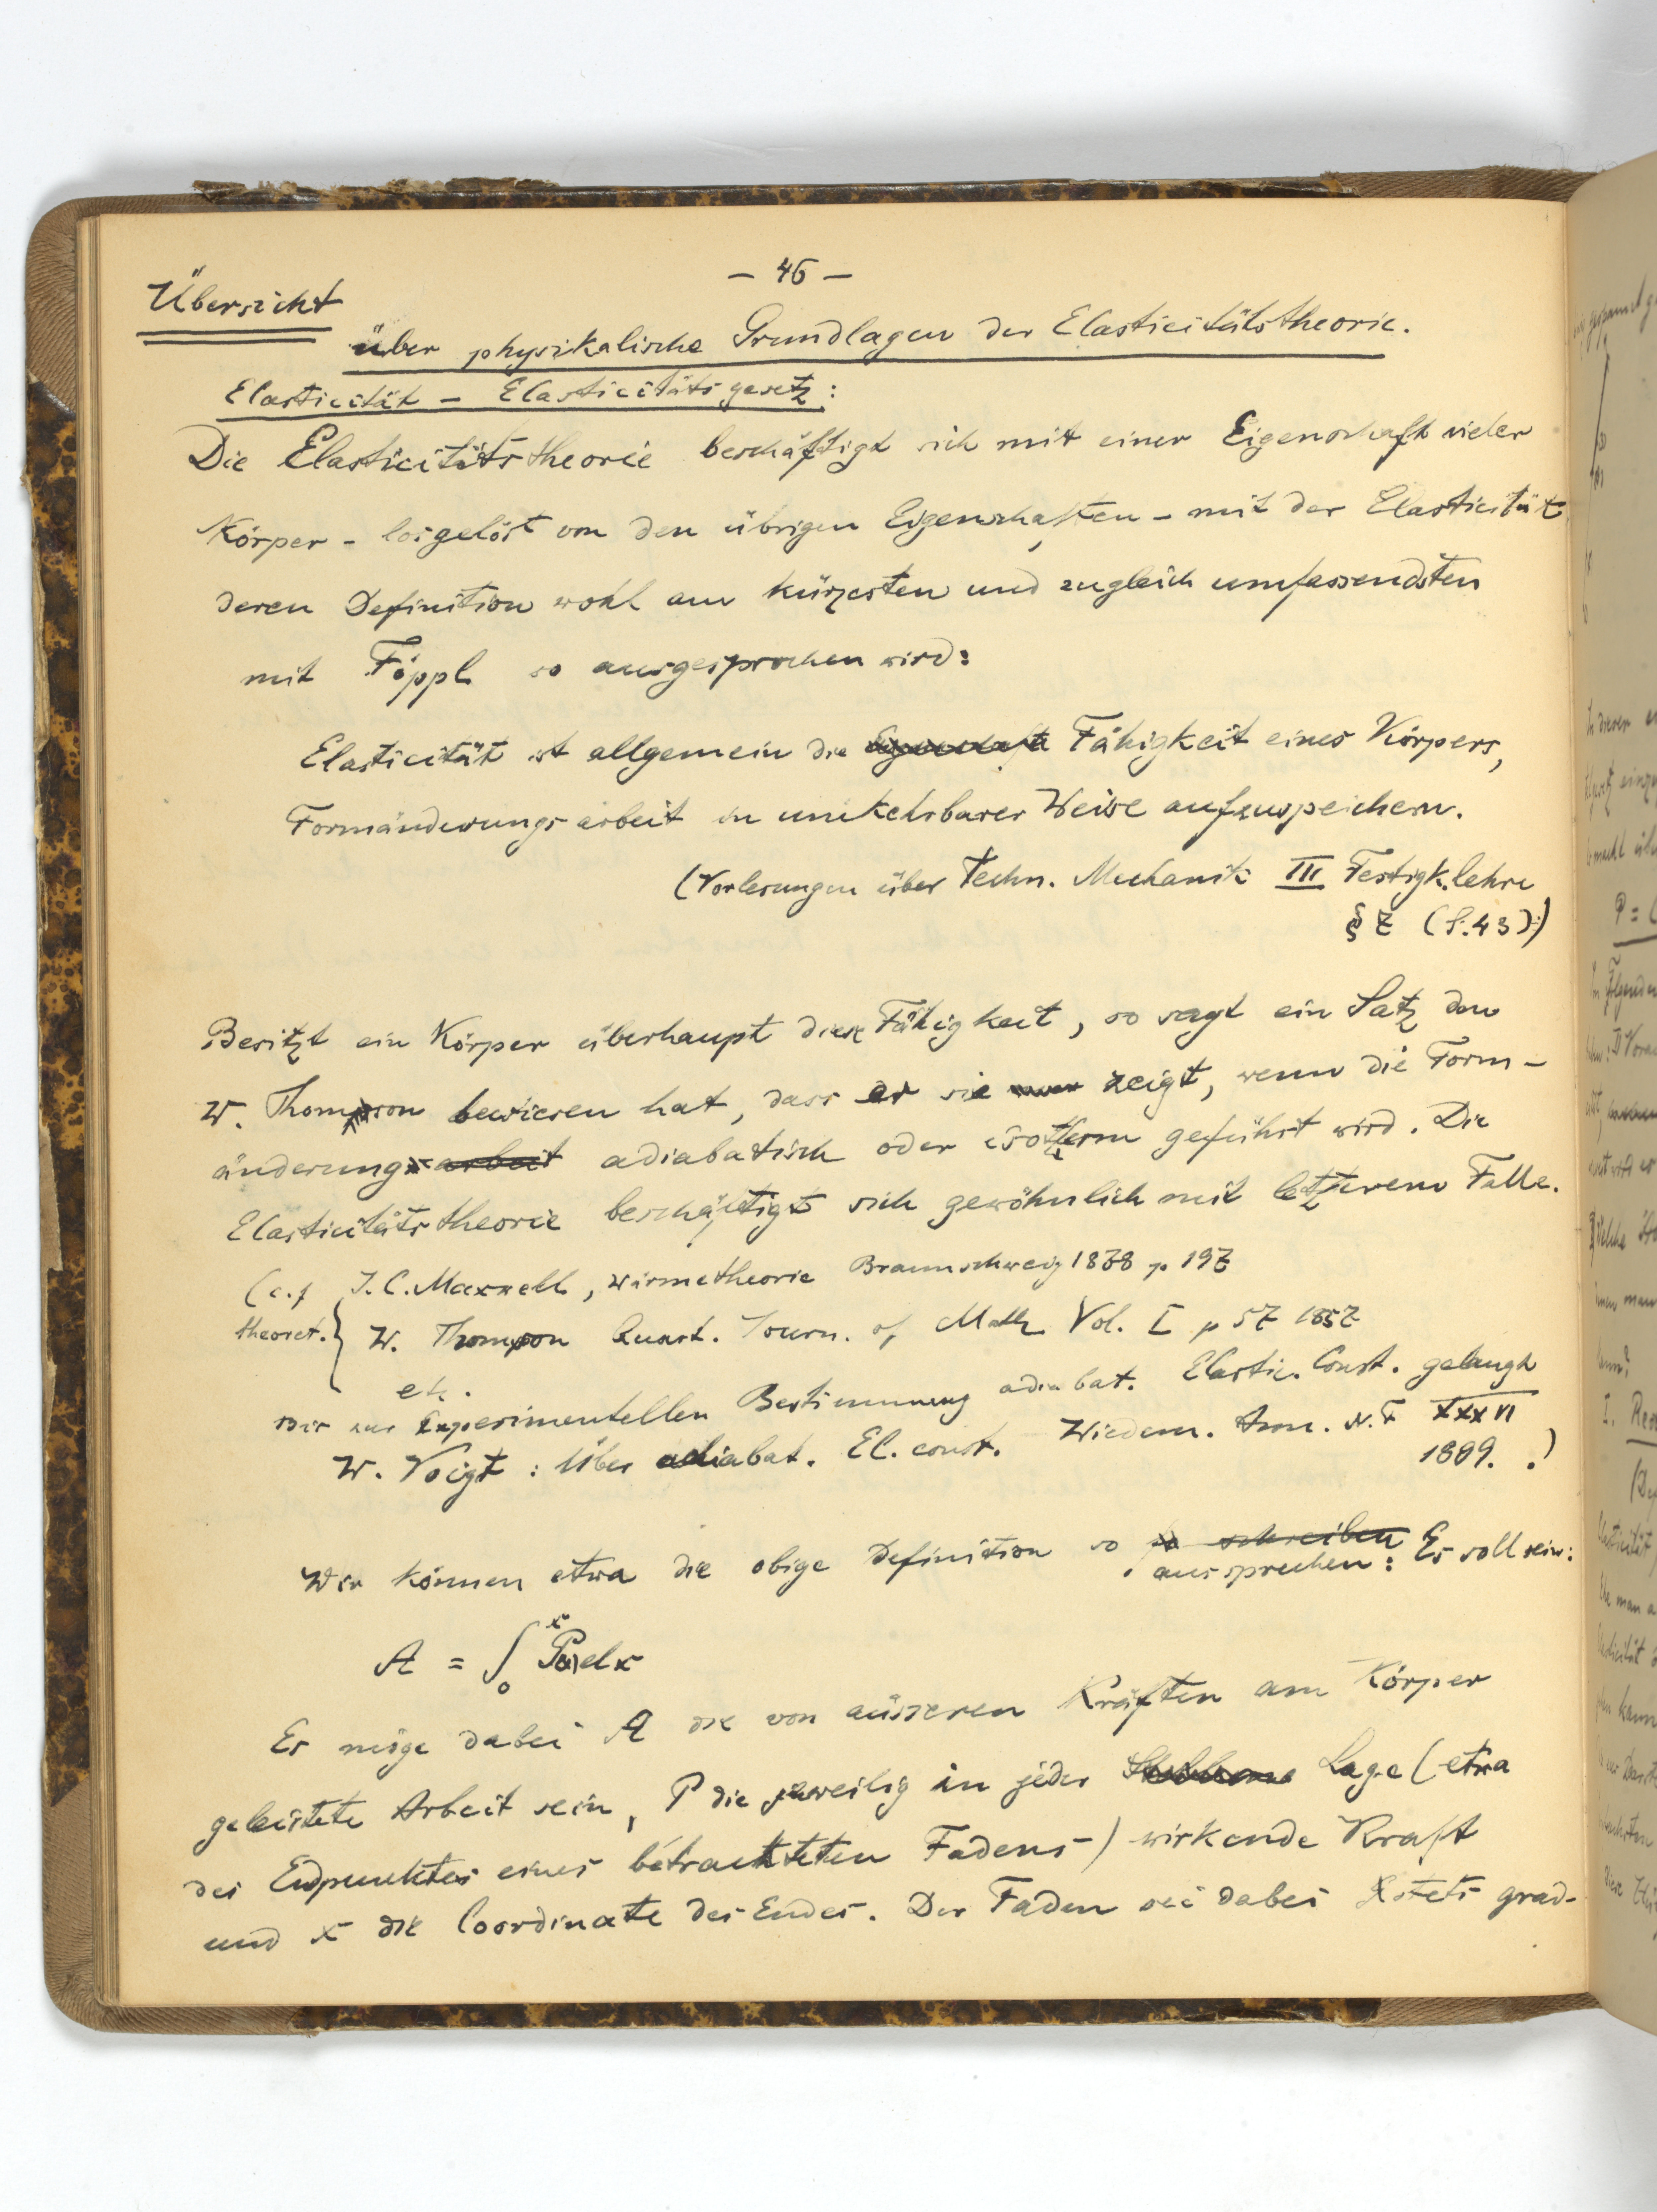 – 46 –
Übersicht
über physikalische Grundlagen der Elasticitätstheorie.
Elasticität – Elasticitätsgesetz:
Die Elasticitätstheorie beschäftigt sich mit einer Eigenschaft vieler
Körper – losgelöst von den übrigen Eigenschaften – mit der Elasticität
deren Definition wohl am kürzesten und zugleich umfassendsten
mit Föppl so ausgesprochen wird:
Elasticität ist allgemein die Eigenschaft Fähigkeit eines Körpers,
Formänderungsarbeit in umkehrbarer Weise aufzuspeichern.
(Vorlesungen über Techn. Mechanik III Festigk.lehre
§ 7 (S. 43))
Besitzt ein Körper überhaupt diese Fähigkeit, so sagt ein Satz den
W. Thomson bewiesen hat, dass er sie nur zeigt, wenn die Form-
änderungsarbeit adiabatisch oder isotherm geführt wird. Die
Elasticitätstheorie beschäftigt sich gewöhnlich mit letzterem Falle.
(c.f J. C. Maxwell, Wärmetheorie Braunschweig 1878 p 197
theoret. } W. Thomson Quart. Journ. of Math Vol. I p 57 1857
etc.
Wir zur Experimentellen Bestimmung adiabat. Elastic. Const. gelangt
W. Voigt : Über adiabat. El. const. Wiedem. Ann. N.F XXXVI
1889. .)
Wir können etwa die obige Definition so schreiben
aussprechen: Es soll sein:
A = ∫₀ˣ P(x)dx
Es möge dabei A die von äusseren Kräften am Körper
geleistete Arbeit sein, P die jeweilig in jeder Lage (etwa
des Endpunktes eines betrachteten Fadens) wirkende Kraft
und x die Coordinate des Endes. Der Faden sei dabei stets grad-